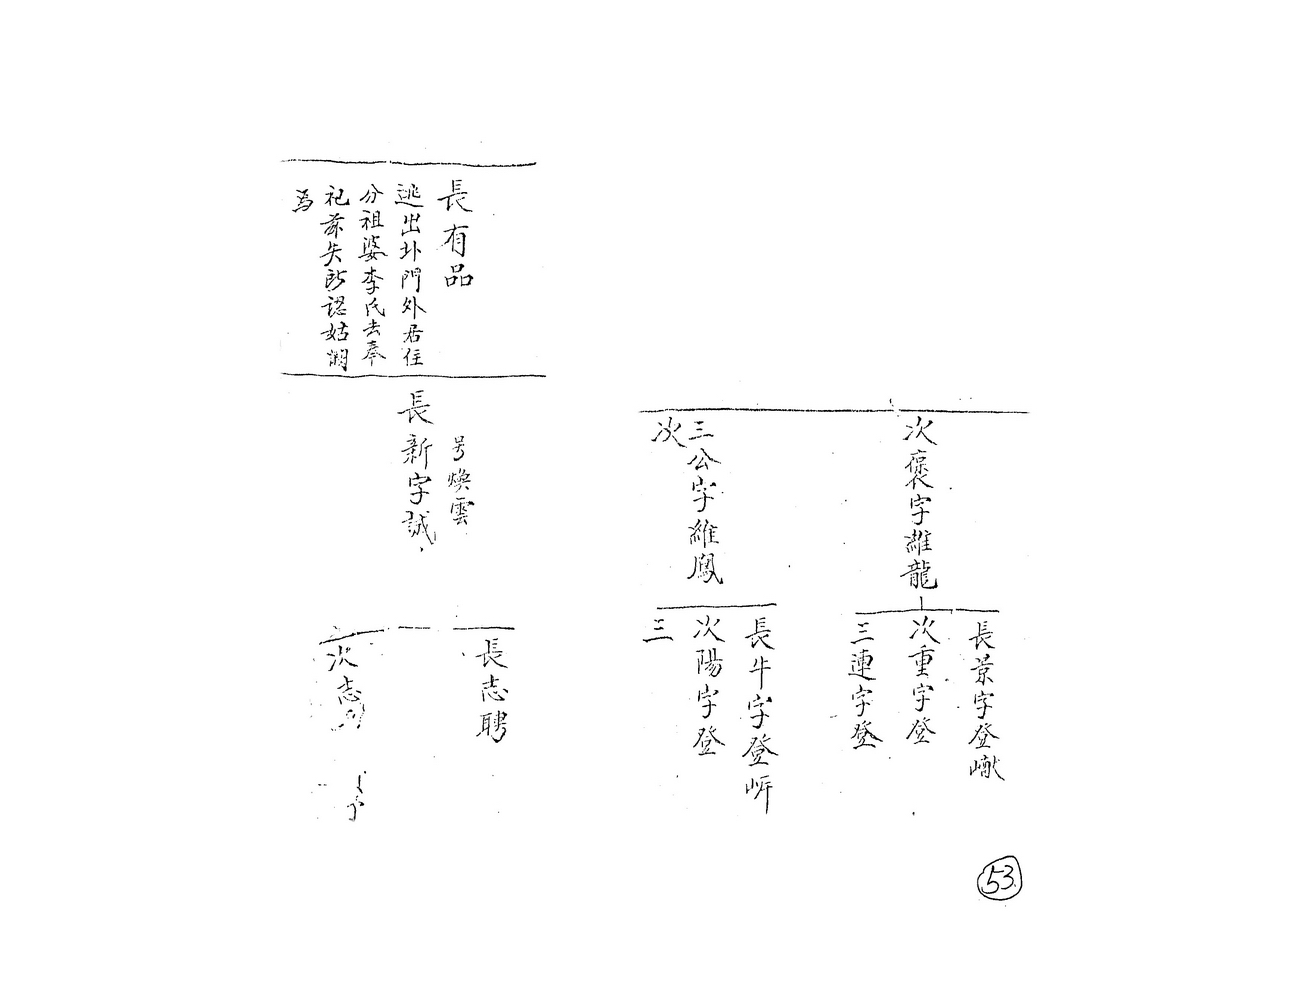 次褒字維龍
三公字維鳳
次
長景字登巘
次重字登
三連字登
長牛字登岍
次陽字登
三
長有品
逃出圤門外居住
分祖婆李氏去奉
祀菾失所認姑
為
号煥雲
長新字誠
長志聘
次志
53